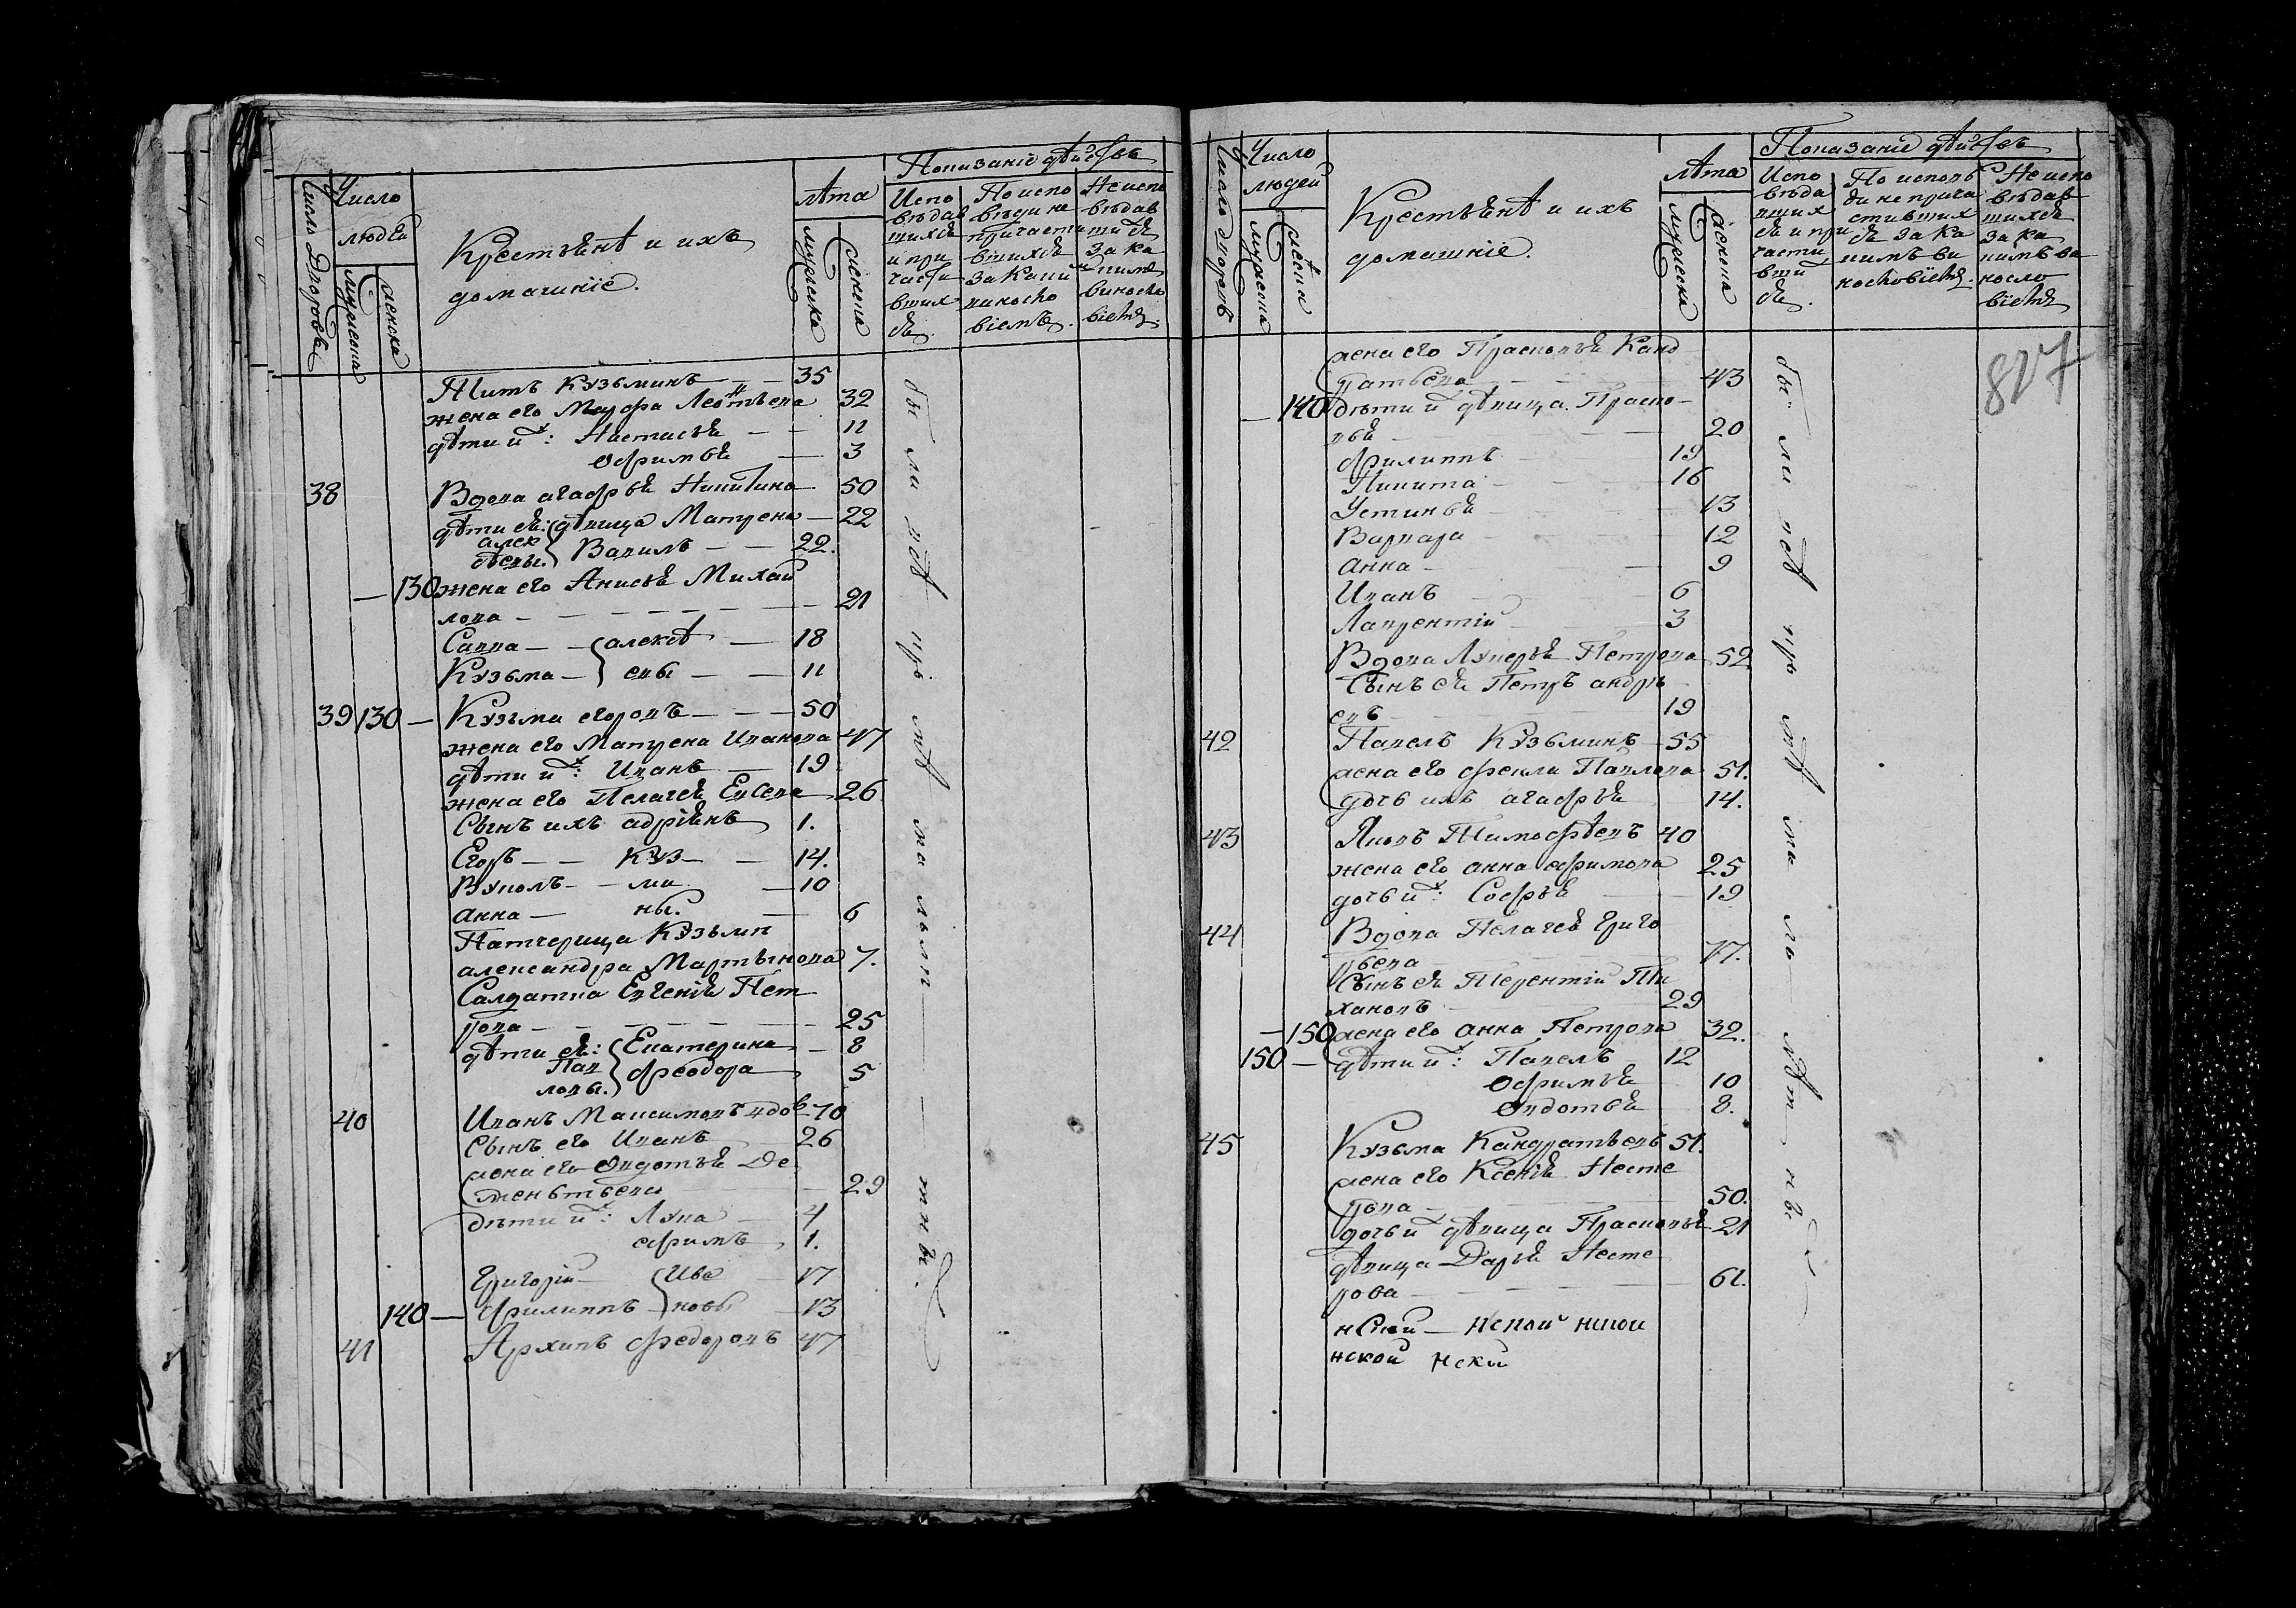 Число Дворовъ
Число
людей
мужеска
женска
Крестьянѣ и ихъ
домашніе.
лѣта
мужеска
женска
Показаніе дѣйствъ
Испо
вѣдав
шихся
и при
части
вших
ся.
По испо
вѣди не
причасти
вшихся
за каки
виносло
віемъ.
Неиспо
вѣдав
шихся
за ка
кимъ
винослο
віемъ
Титъ Кузьминъ — — 35
жена его Марфа Леонтьева 32
дѣти их: Настасья — — 11
Офимья — 3
38 Вдова агафья Никитина 50
дѣти ея: дѣвица Матрена — 22
алек
сѣевы. Вавилъ — — 22.
— 130 жена его Анисья Михай
лова — — — — — — 21
Савва — — алексѣ — 18
Кузьма — евы — — 11
39 130 — Кузьма егоровъ — — — 50
жена его Матрена Иванова 47
дѣти их: Иванъ — 19
жена его Пелагея Евсева 26
Сынъ ихъ адріянъ 1.
Егоръ — — Куз — — 14.
Вуколъ — — ми — 10
анна — ны. — 6
Патчерица Кузьми
александра Мартынова 7.
Салдатка Евгенія Пет
рова — — — — — — 25
дѣти ея: Екатерина — 8
Пав
ловы. Феодора 5
40 Иванъ Максимовъ вдов 70
Сынъ его Иванъ 26
жена его Овдотья Де
ментьева — 29
дѣти их: Лука — 4
ефимъ 1.
Григорій — Ива — 17
140 — филиппъ — новы — 13
41 Архипъ федоровъ 47
бы ли у св
Число дворовъ
Число
людей
мужеска
женска
Крестьянѣ и ихъ
домашніе.
лѣта
мужеска
женска
Показаніе дѣйствъ
Испо
вѣда
вших
ся и при
части
вши
ся.
По исповѣ
ди не прича
стивших
ся за ка
кимъ ви
нословіемъ.
Неиспо
вѣдав
шихся
за ка
кимъ ви
носло
віемъ
827
жена его Прасковья Канд
ратьева — — — — 43
— 140 дѣти их дѣвица Праско-
вья — — — 20
филиппъ — 19
Никита — 16
Устинья — 13
Варвара — 12
анна — — 9
Иванъ 6
Лаврентій 3
Вдова Лукерья Петрова 52
Сынъ ея Петръ андрѣ
евъ 19
42 Павелъ Кузьминъ — 55
жена его фекла Павлова 51.
дочь ихъ агафья 14.
43 Яковъ Тимофѣевъ 40
жена его анна ефимова 25
дочь их: Софья — 19
44 Вдова Пелагея Григо
рьева 77.
Сынъ ея Терентій Ти
хановъ 29
— 150 жена его анна Петрова 32.
150 — дѣти их: Павелъ 12
Офимья 10
Овдотья 8.
45 Кузьма Кандратьевъ 51.
жена его Ксенія Несте
рова — — 50.
дочь их дѣвица Прасковья 21
дѣвица Дарья Несте
рова — — — — 61.